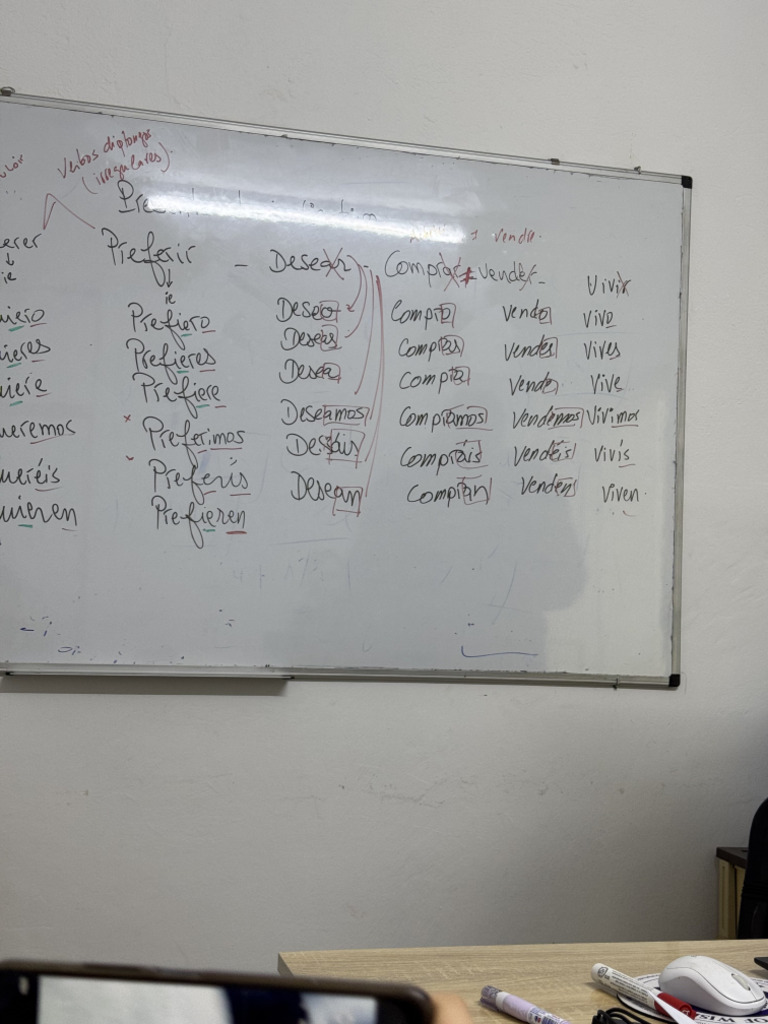 Verbos diptongos
(irregulares)
erer Preferir - Desear - Comprar + vender - Vivir
ie ie
uiero Prefiero Deseo Compro Vendo Vivo
uieres Prefieres Deseas Compras Vendes Vives
uiere Prefiere Desea Compra Vende Vive
ueremos Preferimos Deseamos Compramos Vendemos Vivimos
ueréis Preferís Deseáis Compráis Vendéis Vivís
uieren Prefieren Desean Compran Venden Viven
OF WIS